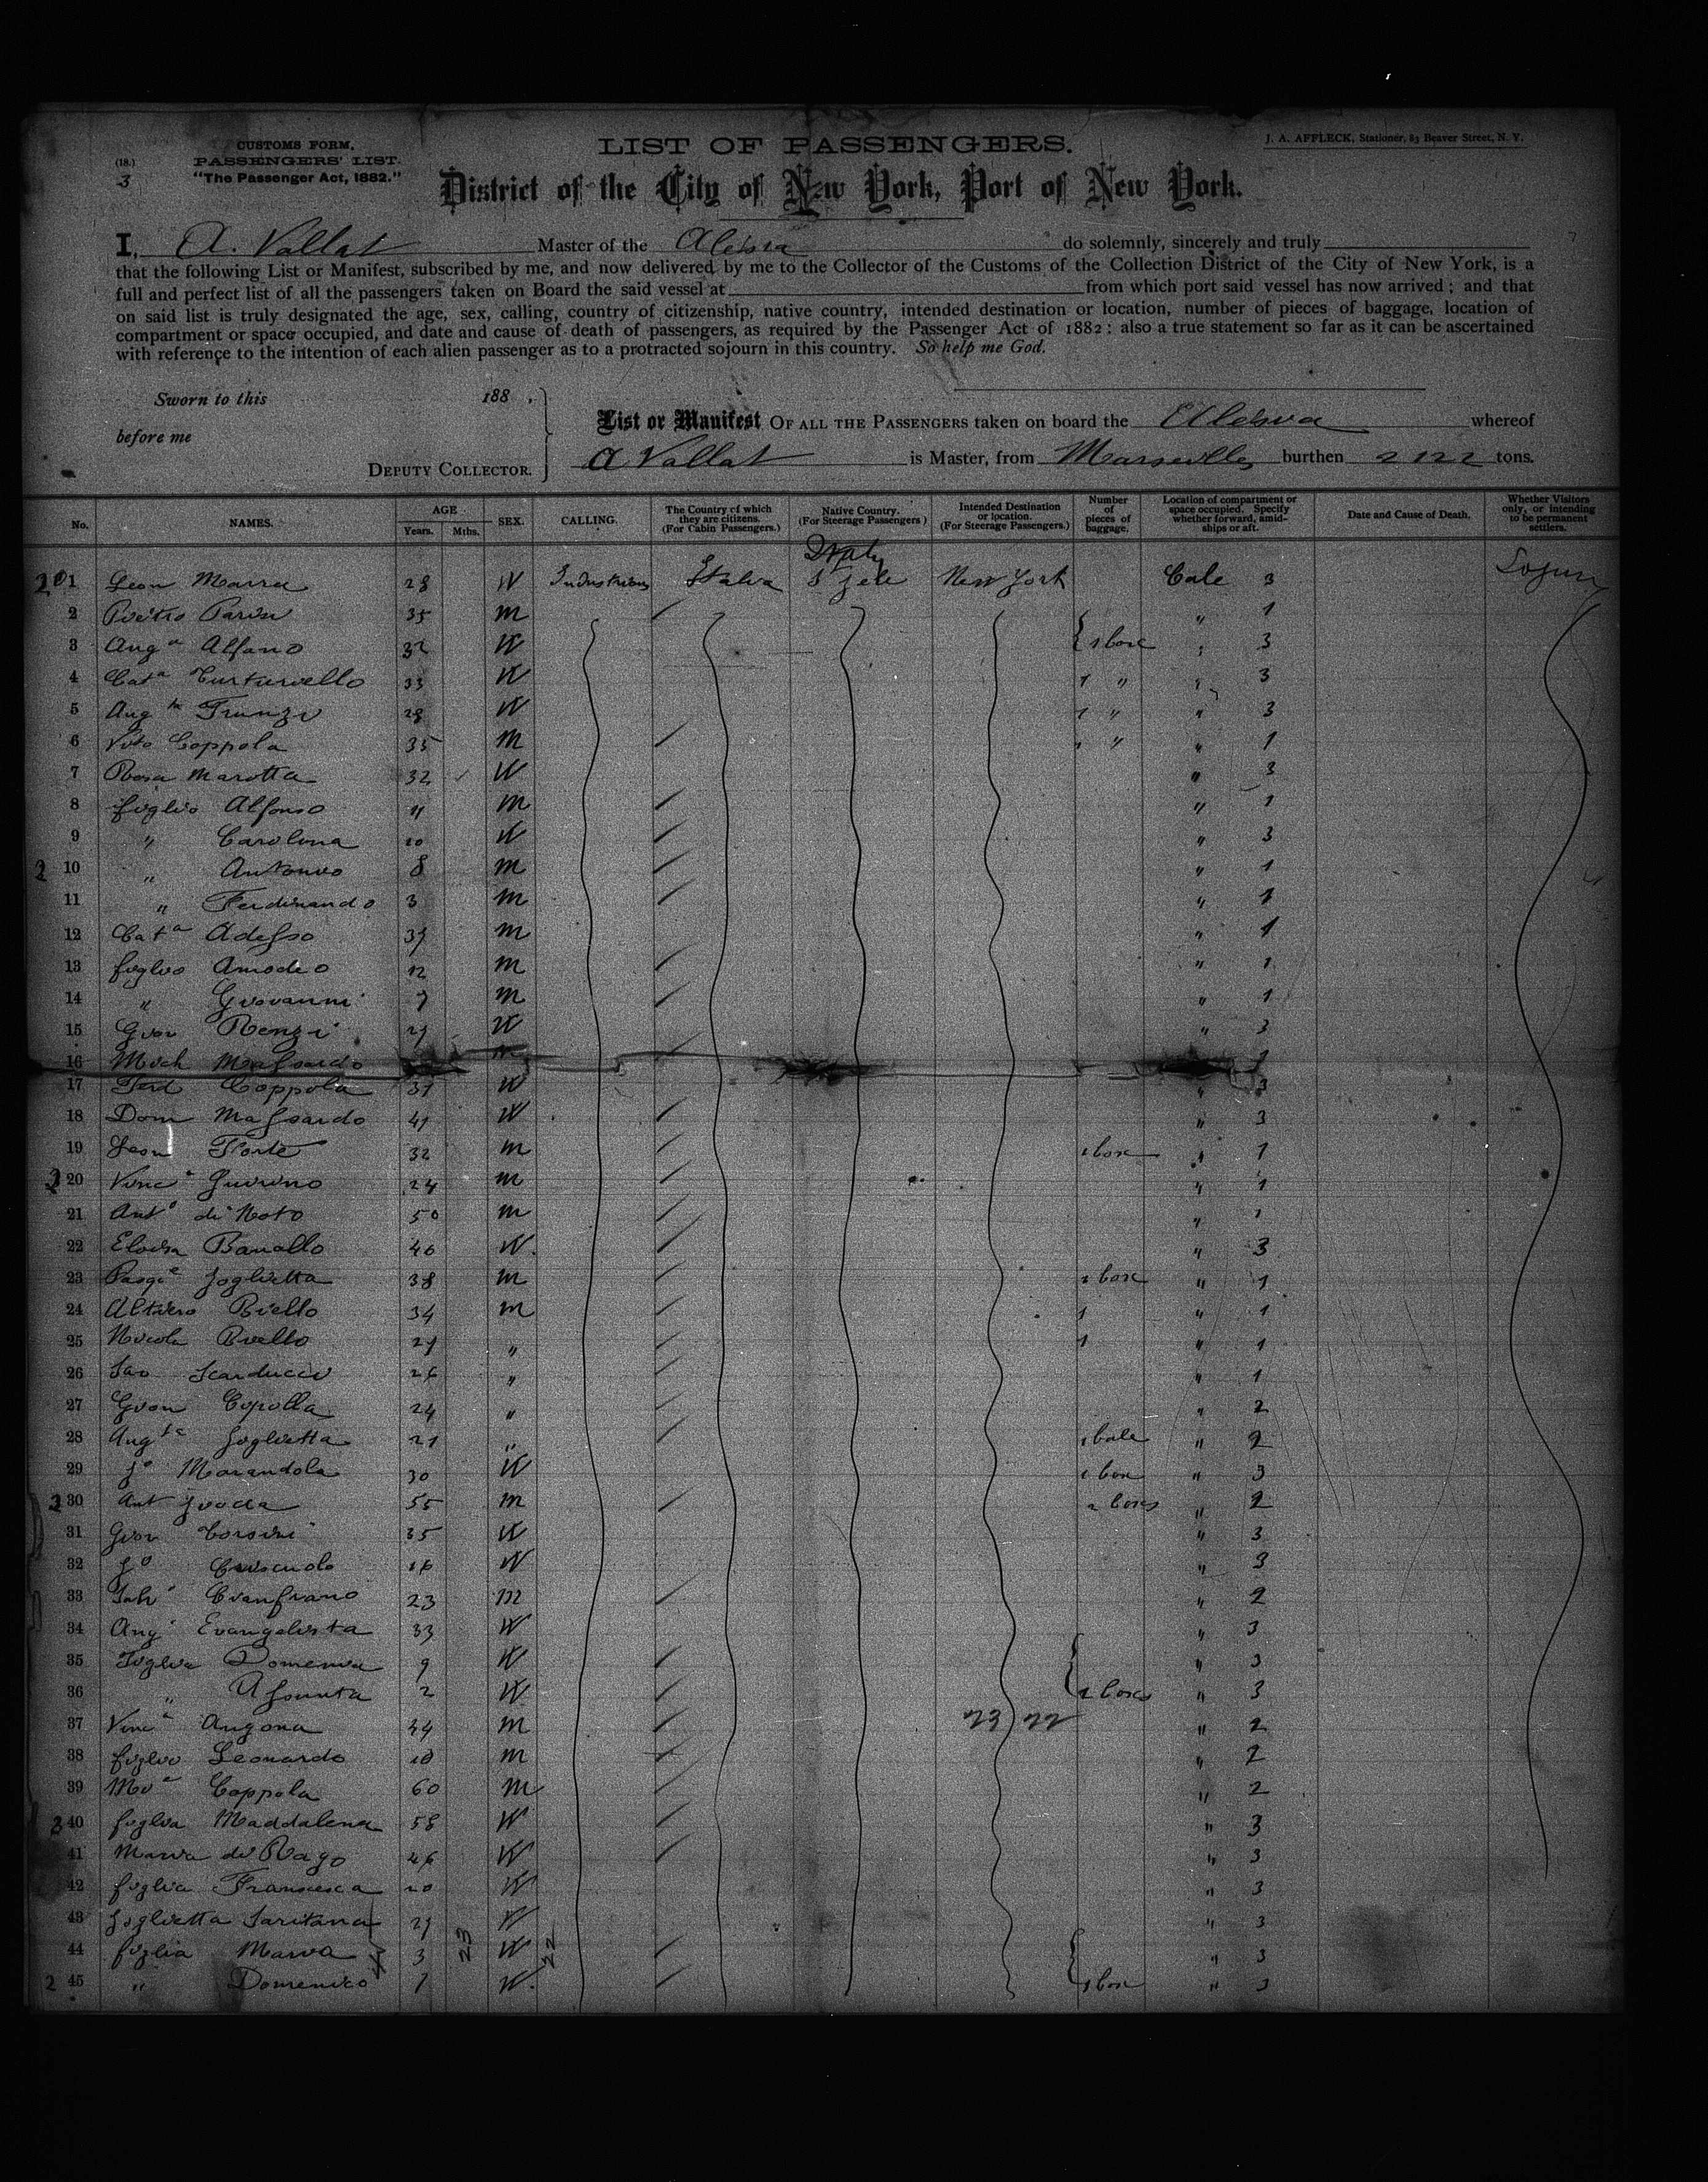 CUSTOMS FORM.
PASSENGERS' LIST.
"The Passenger Act, 1882."
(18.)
3
LIST OF PASSENGERS.
J. A. AFFLECK, Stationer, 83 Beaver Street, N. Y.
District of the City of New York, Port of New York.
I, A. Vallat Master of the Alesia do solemnly, sincerely and truly
that the following List or Manifest, subscribed by me, and now delivered by me to the Collector of the Customs of the Collection District of the City of New York, is a
full and perfect list of all the passengers taken on Board the said vessel at from which port said vessel has now arrived; and that
on said list is truly designated the age, sex, calling, country of citizenship, native country, intended destination or location, number of pieces of baggage, location of
compartment or space occupied, and date and cause of death of passengers, as required by the Passenger Act of 1882: also a true statement so far as it can be ascertained
with reference to the intention of each alien passenger as to a protracted sojourn in this country. So help me God.
Sworn to this 188 .
before me
DEPUTY COLLECTOR.
List or Manifest OF ALL THE PASSENGERS taken on board the Alesia whereof
A Vallat is Master, from Marseilles burthen 2122 tons.
No. NAMES. AGE Years. Mths. SEX. CALLING. The Country of which they are citizens. (For Cabin Passengers.) Native Country. (For Steerage Passengers) Intended Destination or location. (For Steerage Passengers.) Number of pieces of baggage. Location of compartment or space occupied. Specify whether forward, amidships or aft. Date and Cause of Death. Whether Visitors only, or intending to be permanent settlers.
Italy
1 Leon Marra 28 W Italia New York Cale 3
2 Pietro 35 M " 1
3 Ang a Alfano 32 W 1 box " 3
4 Cat a 33 W 1 " " 3
5 Aug ta Trunzi 28 W 1 " " 3
6 Vito Coppola 35 M " " 1
7 Rosa Marotta 32 W " 3
8 figlio Alfonso 11 M " 1
9 " Carolina 10 W " 3
10 " Antonio 8 M " 1
11 " Ferdinando 3 M " 1
12 Cat a Adesso 39 M " 1
13 figlio Amodeo 12 M " 1
14 " Giovanni 7 M " 1
15 Giov Renzi 29 W " 3
16 Mich Massardo M 1
17 Coppola 37 W " 3
18 Dom Massardo 41 W " 3
19 Leon Forte 32 M 1 box " 1
20 Vinc 24 M " 1
21 Ant o di Noto 50 M " 1
22 Eloisa 46 W " 3
23 Pasq e Joglietta 38 M 1 box " 1
24 Altiero Riello 34 M 1 " 1
25 Nicola Riello 29 " 1 " 1
26 Scarducci 26 " " 1
27 Giov Copolla 24 " " 2
28 Aug ta Joglietta 21 " 1 bale " 2
29 Marandola 30 W 1 box " 3
30 Ant 55 M 2 boxes " 2
31 Giov Corsini 35 W " 3
32 Criscuolo 16 W " 3
33 Cianfrano 23 M " 2
34 Ang Evangelista 33 W " 3
35 Figlia Domenica 9 W " 3
36 " Assunta 2 W 2 boxes " 3
37 Vinc Angona 44 M 23 22 " 2
38 figlio Leonardo 10 M " 2
39 Coppola 60 M " 2
40 figlia Maddalena 58 W " 3
41 Maria di Rago 46 W " 3
42 figlia Francesca 20 W " 3
43 Joglietta 29 W " 3
44 figlia Maria 3 W " 3
45 " Domenico 1 W 1 box " 3
23
22